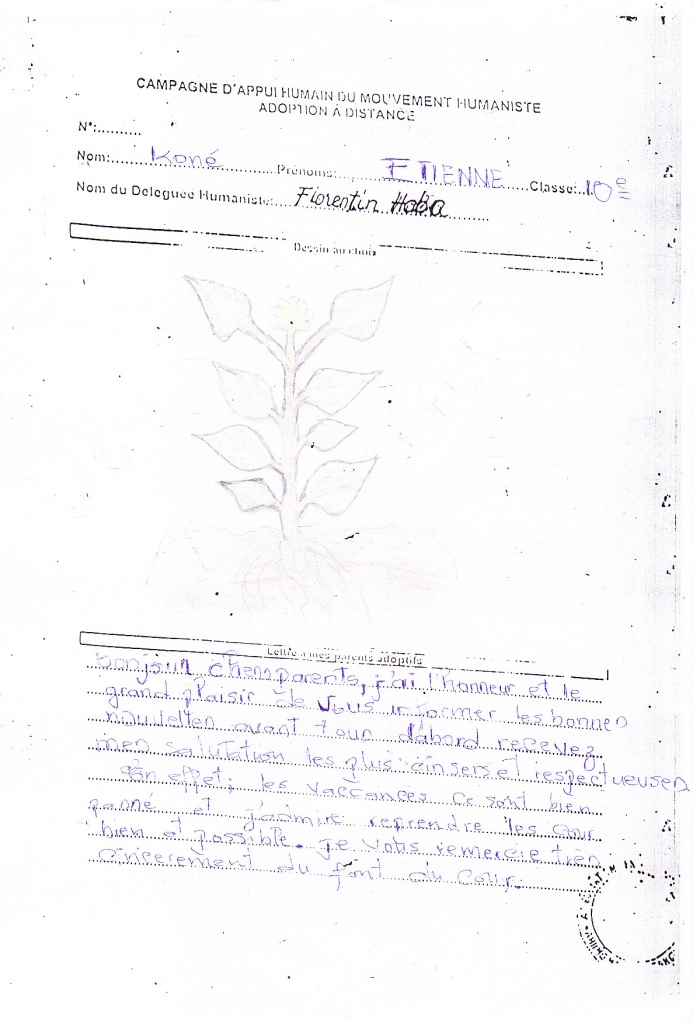 CAMPAGNE D'APPUI HUMAIN DU MOUVEMENT HUMANISTE
ADOPTION À DISTANCE
N°:..........
Nom:......Koné.........Prénoms:.......ETIENNE....Classe:..10e
Nom du Deleguée Humaniste:....Florentin Haba
Dessin au choix
Lettre à mes parents adoptifs
Bonjour chers parents, j'ai l'honneur et le
grand plaisir de vous informer les bonnes
nouvelles avant tous d'abord recevez
mes salutation les plus sinserset respectueuses
En effet; les vaccances ce sont bien
passé et j'admire reprendre les cour
bien et possible. je vous remercie très
sincerement du font du Cour.